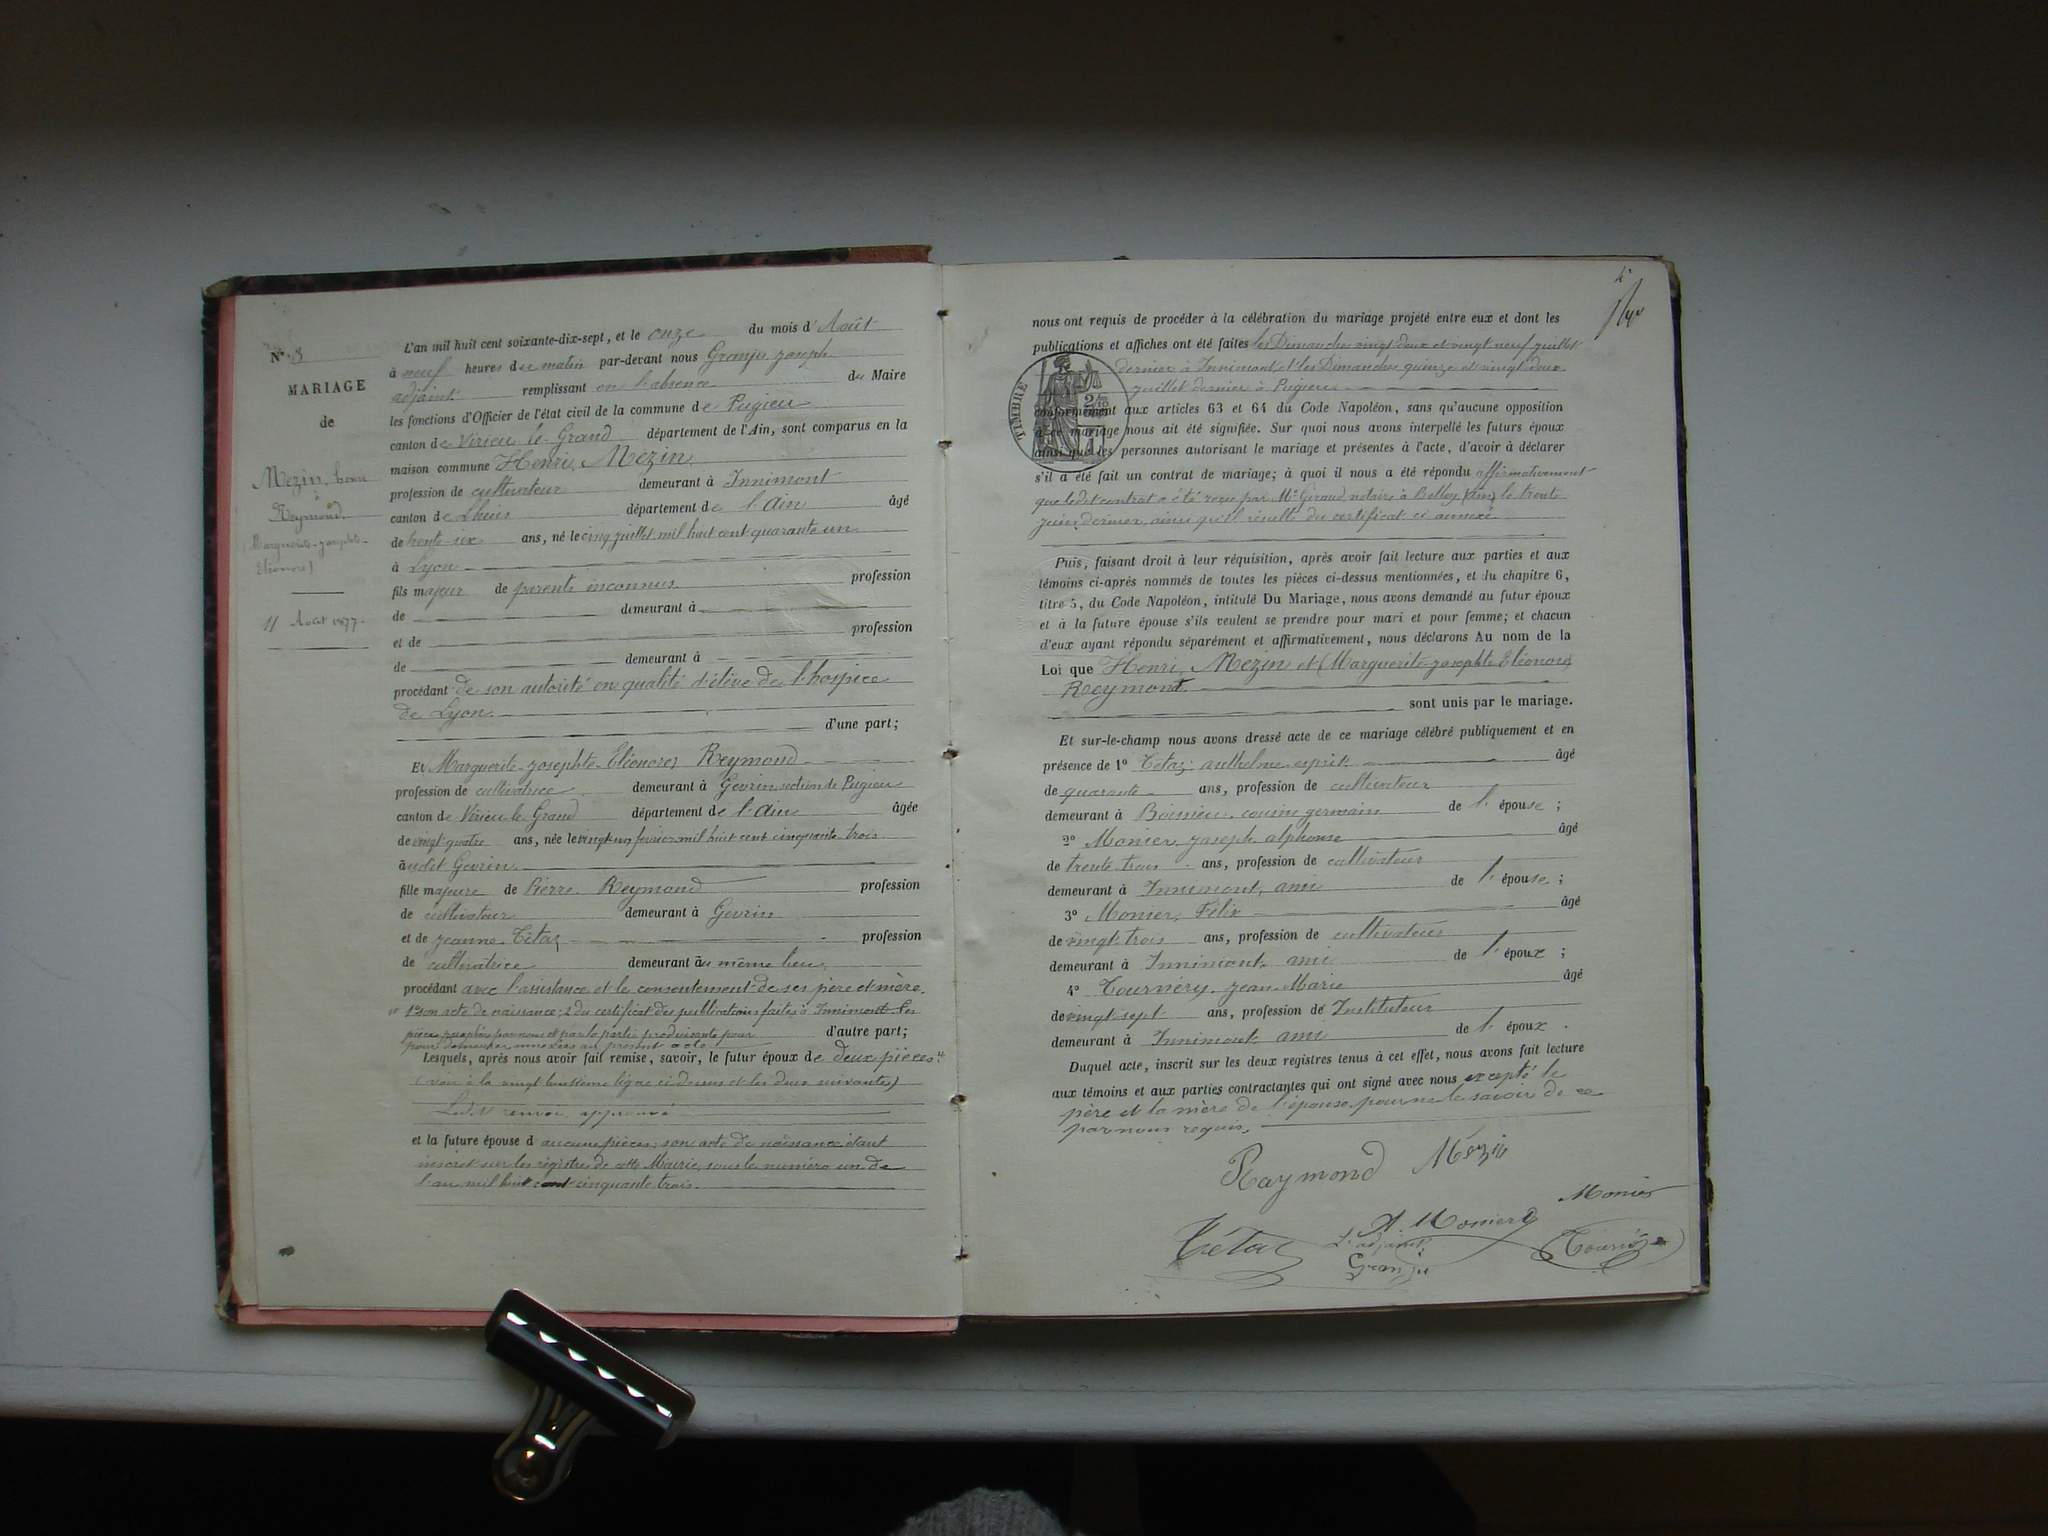 N° 3
MARIAGE
de
Mezin, henri
à
Reymond
Marguerite-josephte-
Eléonore)
11 Août 1877.
L'an mil huit cent soixante-dix-sept, et le onze du mois d'Août
à neuf heures du matin par-devant nous Granju joseph
adjoint remplissant en l'absence du Maire
les fonctions d'Officier de l'état civil de la commune de Pugieu
canton de Virieu le Grand département de l'Ain, sont comparus en la
maison commune Henri Mezin
profession de cultivateur demeurant à Innimont
canton de Lhuis département de l'Ain âgé
de trente six ans, né le cinq juillet mil huit cent quarante un
à Lyon
fils majeur de parents inconnus profession
de demeurant à
et de profession
de demeurant à
procédant de son autorité en qualité d'élève de l'hospice
de Lyon.
d'une part;
Et Marguerite-josephte-Eléonore) Reymond
profession de cultivatrice demeurant à Gevrin section de Pugieu
canton de Virieu-le-Grand département de l'Ain âgée
de vingt quatre ans, née le vingt un février mil huit cent cinquante trois
audit Gevrin
fille majeure de Pierre Reymond profession
de cultivateur demeurant à Gevrin
et de jeanne Tétaz profession
de cultivatrice demeurant au même lieu
procédant avec l'assistance et le consentement de ses père et mère.
1° son acte de naissance; 2° du certificat des publications faites à Innimont les
pièces paraphées par nous et par la partie produisante pour d'autre part;
pour demeurer annexées au présent acte
Lesquels, après nous avoir fait remise, savoir, le futur époux de deux pièces
(voir à la vingt huitième ligne ci dessus et les deux suivantes)
Ledit renvoi approuvé
et la future épouse d'aucune pièces, son acte de naissance étant
inscrit sur les registres de cette Mairie sous le numéro un de
l'an mil huit cent cinquante trois.
4
nous ont requis de procéder à la célébration du mariage projeté entre eux et dont les
publications et affiches ont été faites les Dimanches vingt deux et vingt neuf juillet
dernier à Innimont et les Dimanches quinze et vingt deux
juillet dernier à Pugieu
TIMBRE
conformément aux articles 63 et 64 du Code Napoléon, sans qu'aucune opposition
à ce mariage nous ait été signifiée. Sur quoi nous avons interpellé les futurs époux
ainsi que les personnes autorisant le mariage et présentes à l'acte, d'avoir à déclarer
s'il a été fait un contrat de mariage; à quoi il nous a été répondu affirmativement
que ledit contrat a été reçu par Me Giraud notaire à Belley (Ain) le trente
juin dernier, ainsi qu'il résulte du certificat ci annexé
Puis, faisant droit à leur réquisition, après avoir fait lecture aux parties et aux
témoins ci-après nommés de toutes les pièces ci-dessus mentionnées, et du chapitre 6,
titre 5, du Code Napoléon, intitulé Du Mariage, nous avons demandé au futur époux
et à la future épouse s'ils veulent se prendre pour mari et pour femme; et chacun
d'eux ayant répondu séparément et affirmativement, nous déclarons Au nom de la
Loi que Henri Mezin et (Marguerite-josephte Eléonore)
Reymond
sont unis par le mariage.
Et sur-le-champ nous avons dressé acte de ce mariage célébré publiquement et en
présence de 1° Tétaz anthelme esprit âgé
de quarante ans, profession de cultivateur
demeurant à cousin germain de l'épouse;
2° Monier joseph alphonse âgé
de trente trois ans, profession de cultivateur
demeurant à Innimont, ami de l'épouse;
3° Monier, Félix âgé
de vingt trois ans, profession de cultivateur
demeurant à Innimont ami de l'époux;
4° Tournéry jean Marie âgé
de vingt sept ans, profession de Instituteur
demeurant à Innimont ami de l'époux.
Duquel acte, inscrit sur les deux registres tenus à cet effet, nous avons fait lecture
aux témoins et aux parties contractantes qui ont signé avec nous excepté le
père et la mère de l'épouse pour ne le savoir de ce
par nous requis.
Raymond Mézin
Monier
Tétaz A. Monier
L'adjoint
Granju